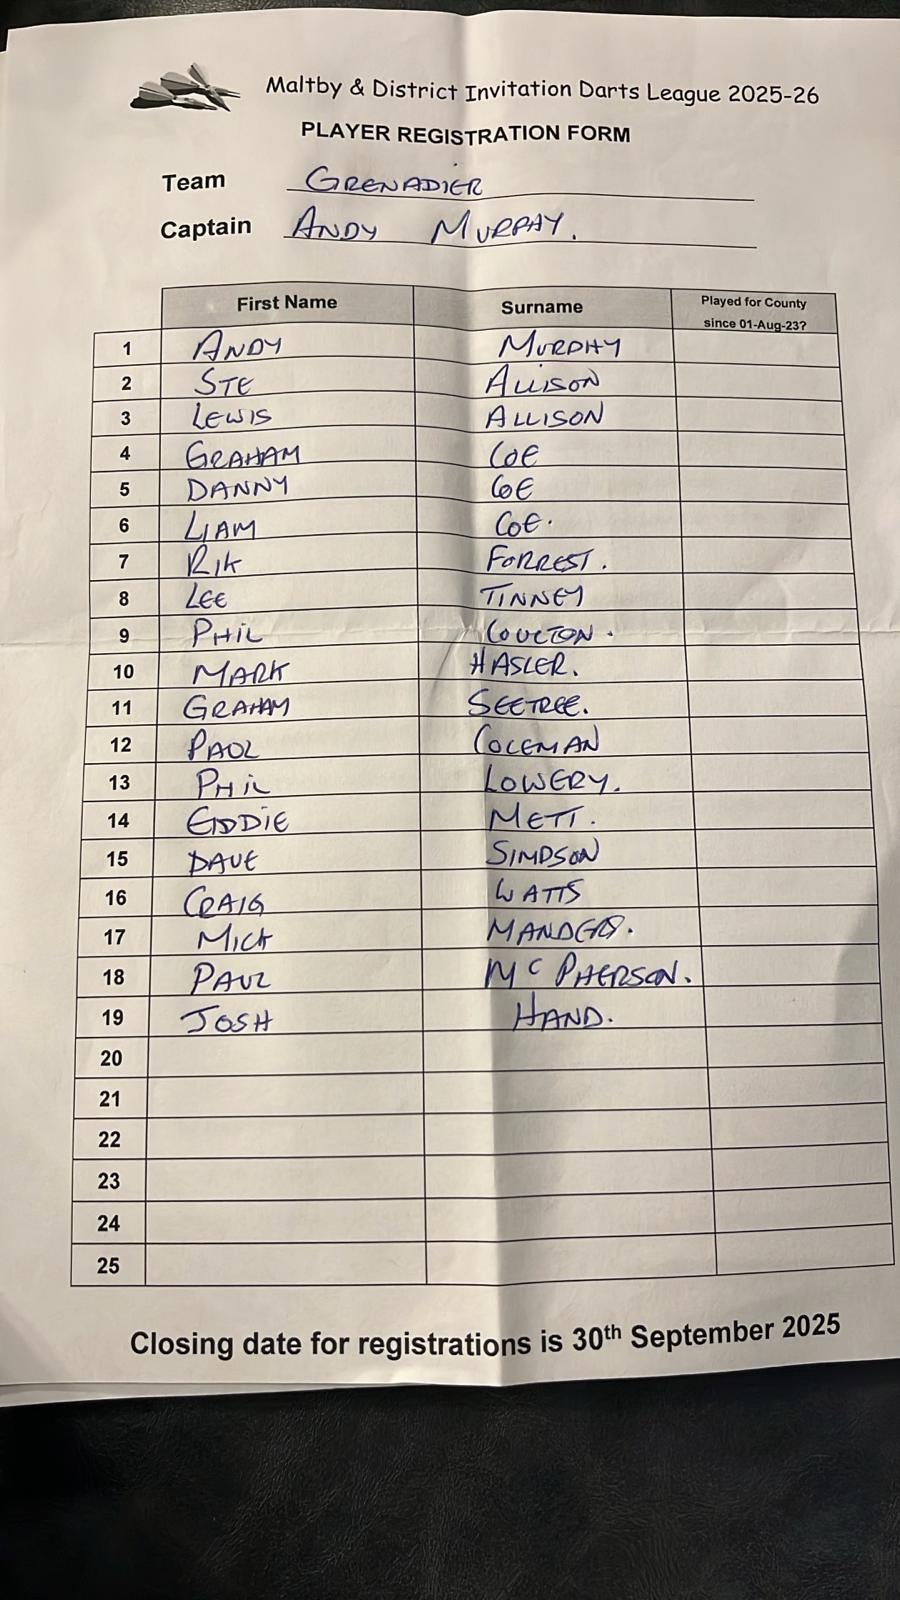 Maltby & District Invitation Darts League 2025-26
PLAYER REGISTRATION FORM
Team GRENADIER
Captain ANDY MURPHY.
First Name Surname Played for County since 01-Aug-23?
1 ANDY MURPHY
2 STE ALLISON
3 LEWIS ALLISON
4 GRAHAM COE
5 DANNY COE
6 LIAM COE.
7 RIK FORREST.
8 LEE TINNEY
9 PHIL COULTON.
10 MARK HASLER.
11 GRAHAM SEETREE.
12 PAUL COLEMAN
13 PHIL LOWERY.
14 EDDIE METT.
15 DAVE SIMPSON
16 CRAIG WATTS
17 MICK MANDERS.
18 PAUL McPHERSON.
19 JOSH HAND.
20
21
22
23
24
25
Closing date for registrations is 30th September 2025